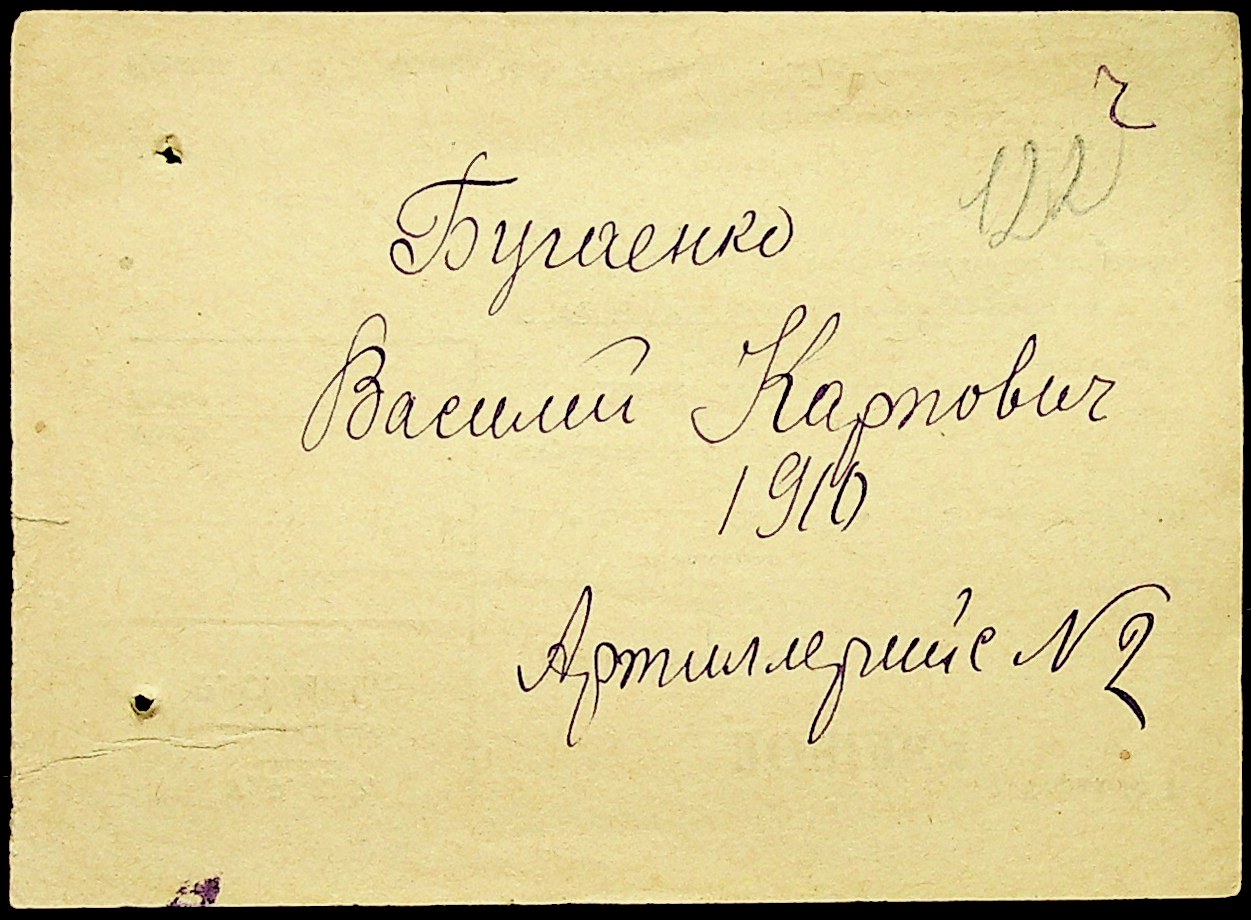 ч
122
Бугаенко
Василий Карпович
1910
Артиллерийс N 2